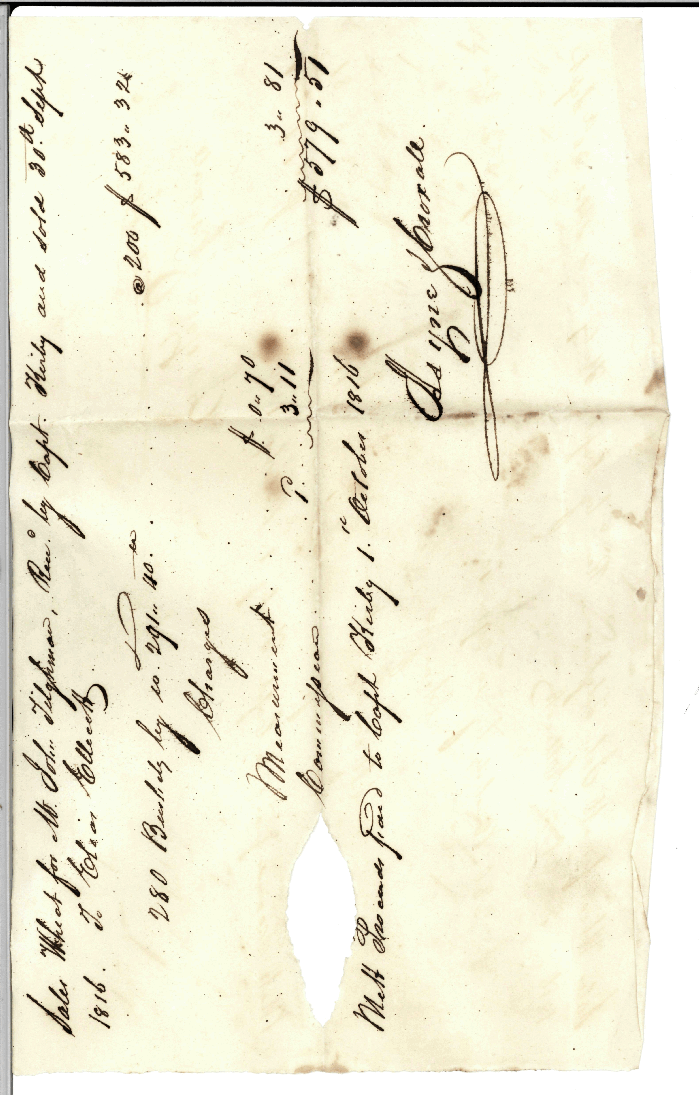 Sales Wheat for Mr. John Tilghman, Recd. by Capt. Kirby and sold 30th Sept
1816. To Elias Ellicott
280 Bushels by wt. 291.. 40. @ 200 $ 583.. 32
Charges
Measurement $ 0.. 70
Commission 3.. 11 3.. 81
$ 579. 51
Nett Proceeds paid to Capt Kirby 1st October 1816
Tyne & Croxall.